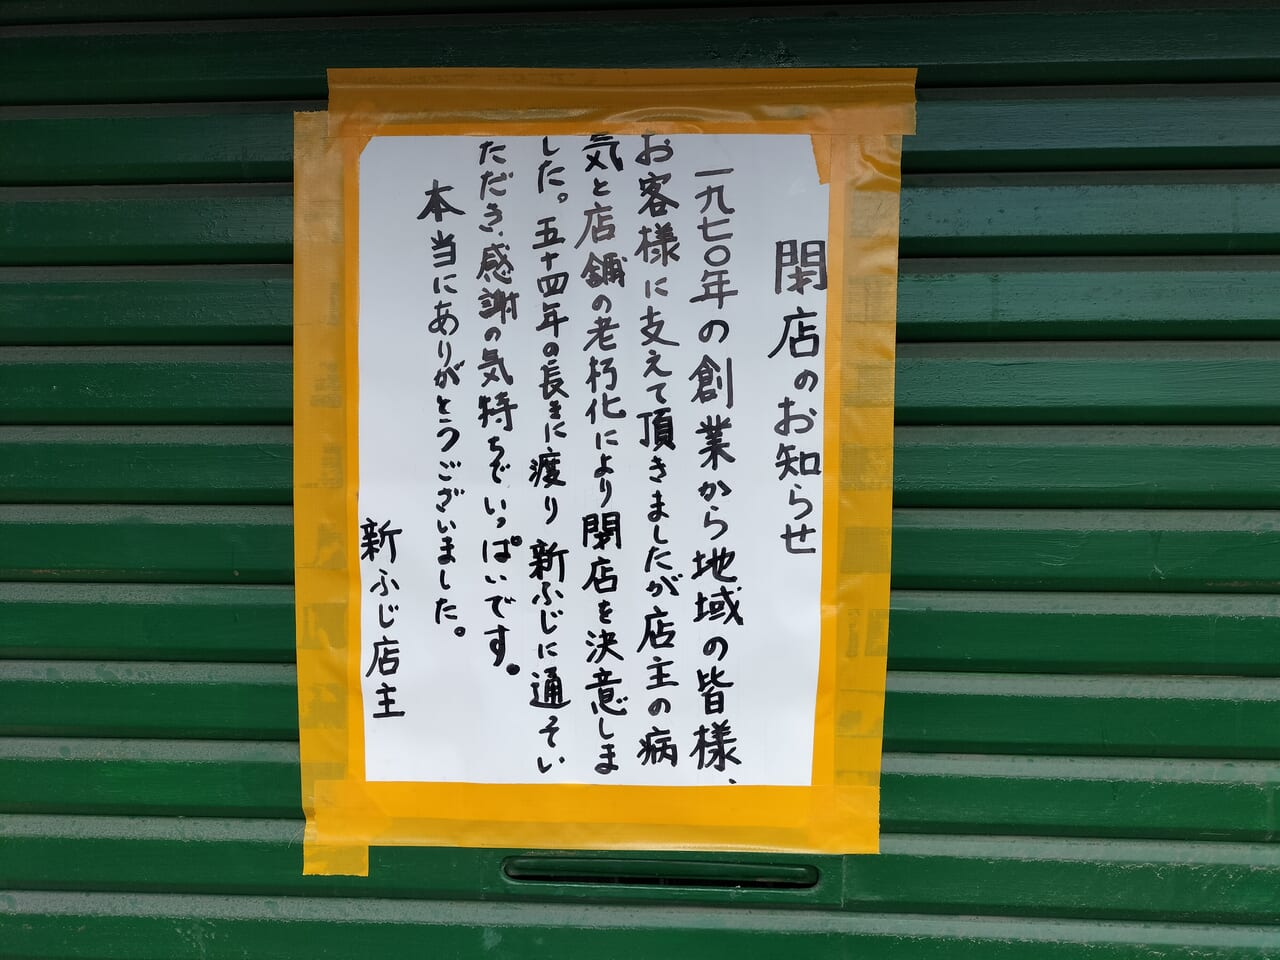 閉店のお知らせ
一九七〇年の創業から地域の皆様、
お客様に支えて頂きましたが店主の病
気と店舗の老朽化により閉店を決意しま
した。五十四年の長きに渡り新ふじに通そい
ただき、感謝の気持ちでいっぱいです。
本当にありがとうございました。
新ふじ店主